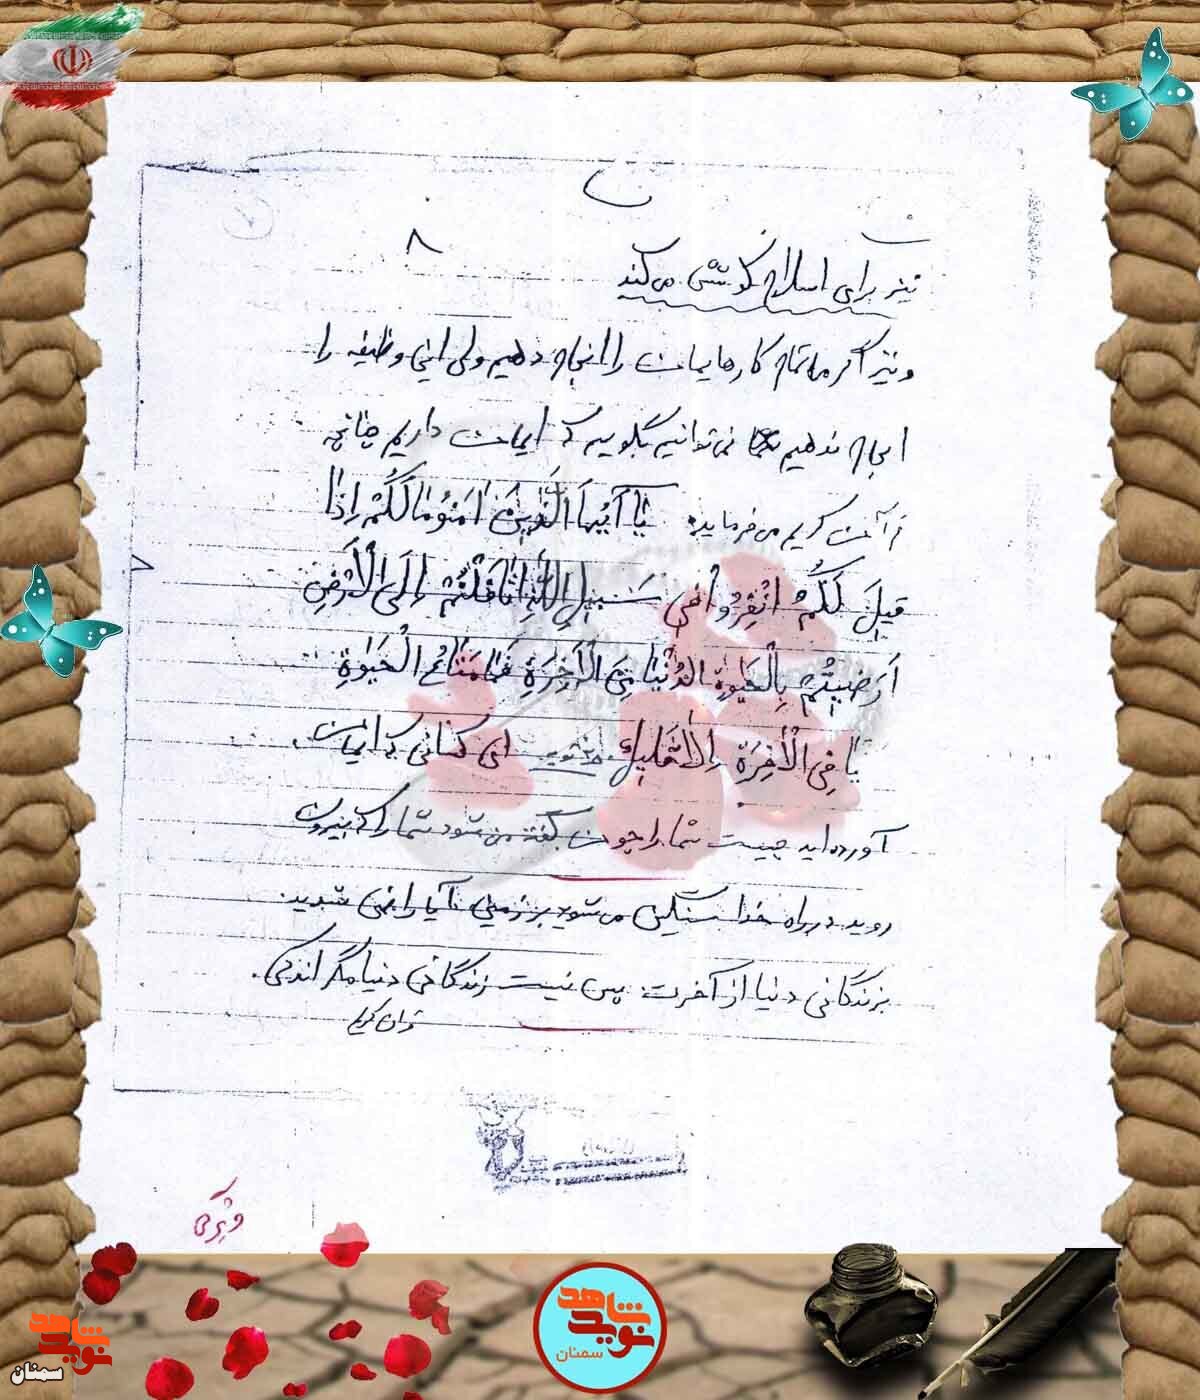 ۸
نیز برای اسلام کوشش می‌کند
و نیز اگر ما تمام کارهایمان را انجام دهیم ولی این وظیفه را
انجام ندهیم نمی‌توانیم بگوییم که ایمان داریم چنانچه
قرآن کریم می‌فرماید: یَا أَیُّهَا الَّذِینَ اٰمَنُوا مَا لَکُمْ اِذَا
قِیلَ لَکُمُ انْفِرُوا فِی سَبِیلِ اللّٰهِ اثَّاقَلْتُمْ اِلَی الْأَرْضِ
اَرَضِیتُمْ بِالْحَیٰوةِ الدُّنْیَا مِنَ الْآخِرَةِ فَمَا مَتَاعُ الْحَیٰوةِ
یَا فِی الْآخِرَةِ اِلَّا قَلِیلٌ. ای کسانی که ایمان
آورده‌اید چیست شما را چون گفته می‌شود شما را که بیرون
روید در راه خدا سنگین می‌شوید بر زمین آیا راضی شدید
بزندگانی دنیا از آخرت پس نیست زندگانی دنیا مگر اندکی.
قرآن کریم
نوید شاهد
سمنان
نوید شاهد
سمنان